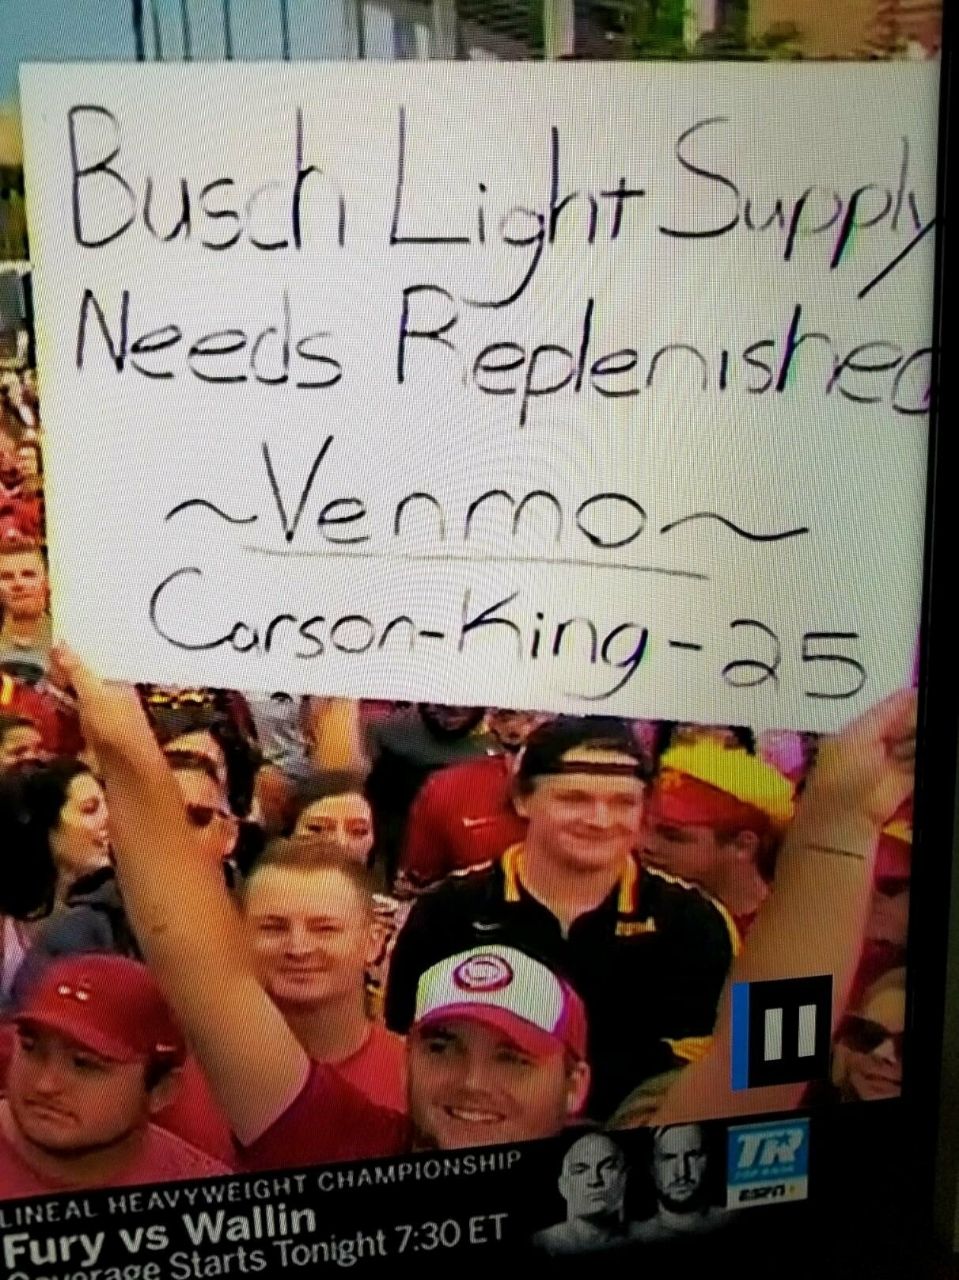 Busch Light Supply
Needs Replenished
~Venmo~
Carson-King-25
LINEAL HEAVYWEIGHT CHAMPIONSHIP
Fury vs Wallin
Coverage Starts Tonight 7:30 ET
TR
TOP RANK
ESPN+